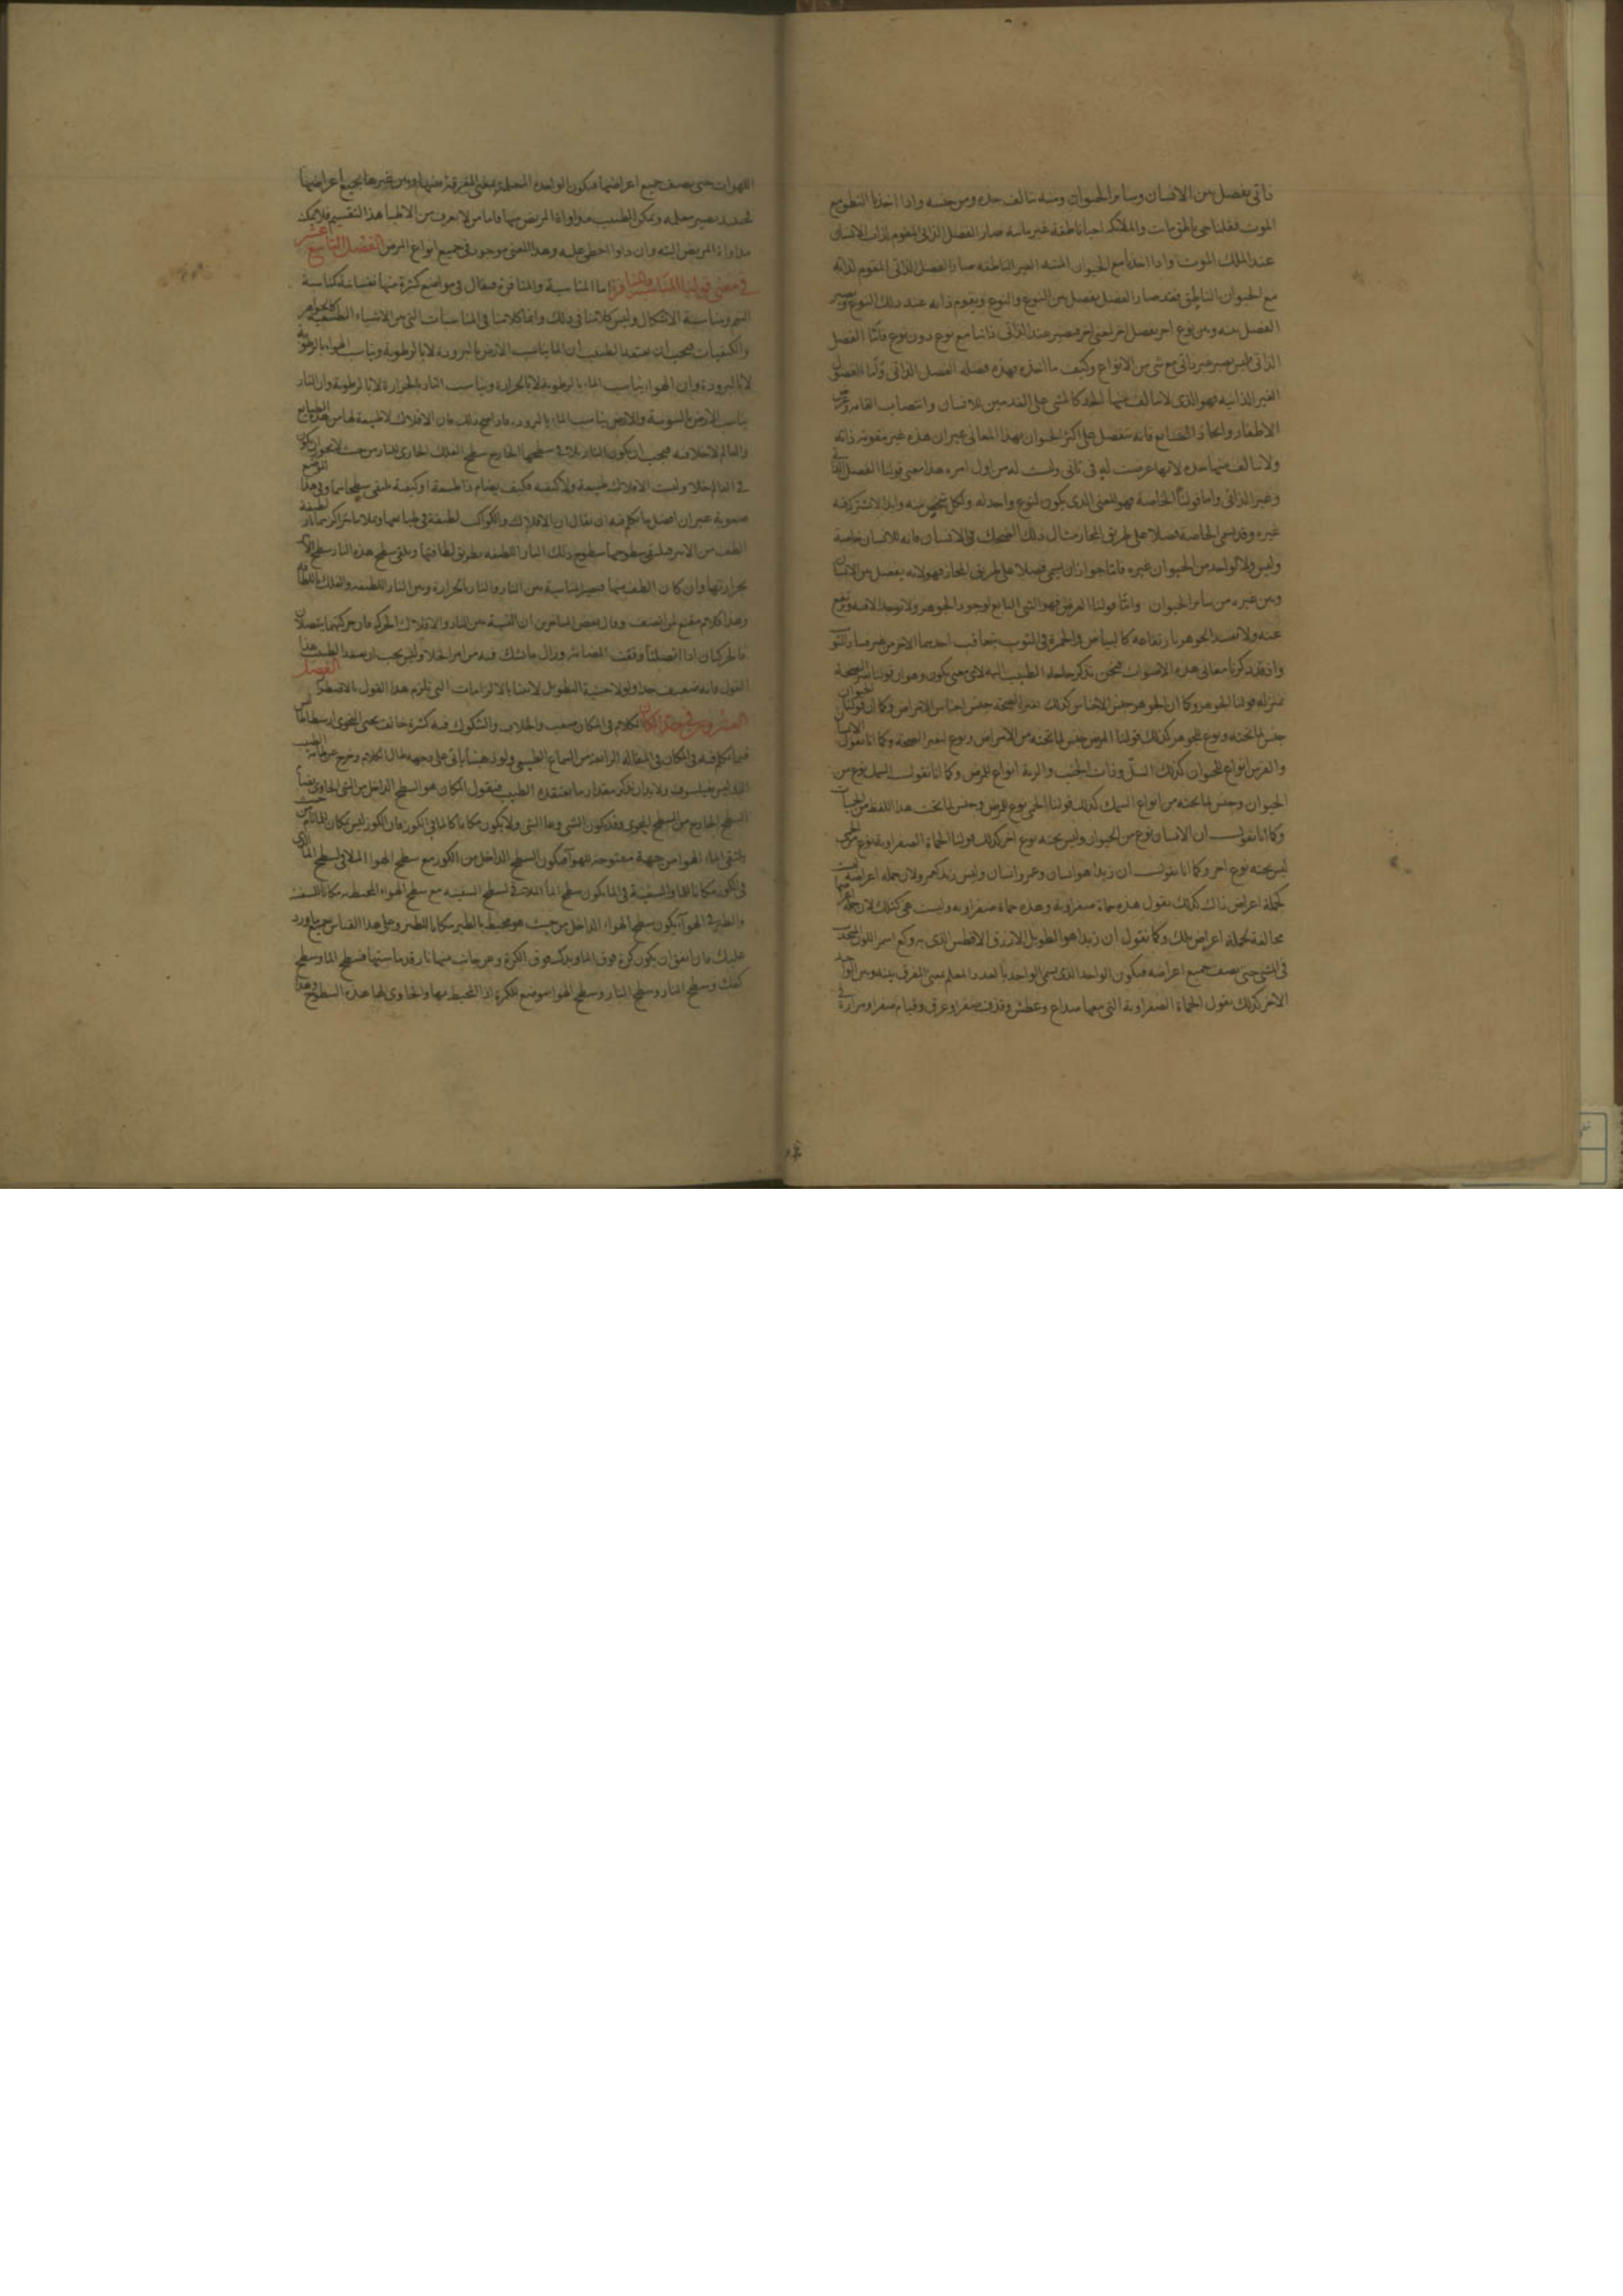 ذاتى يفصل بين الانسان وسائر الحيوان ومنه يتالف حده ومن جنسه واذا اخذنا النطق مع
الموت فقلنا حى ناطق مات والملائكة احياناطقة غير مايته صار الفصل الذاتى المقوم لذات الانسان
عند الملك الموت واذا اخذنا مع الحيوان الميته الغير الناطقه صار الفصل الذاتى المقوم لذاته
مع الحيوان الناطق فقد صار الفصل يفصل بين النوع والنوع ويقوم ذاته عند ذلك النوع ويصير
الفصل بينه وبين نوع اخر بفصل اخر لمعنى اخر فيصير عند الذاتى ذاتيا مع نوع دون نوع فامّا الفصل
الذاتى فليس يصير غير ذاتى مع شى من الانواع وكيف ما اتخذه بهذه فصله الفصل الذاتى وامّا الفصول
الغير الذاتيه فهو الذى لا يتالف منها الحد كالمشى على القدمين للانسان وانتصاب القامه وعرض
الاظفار واتخاذ الصنايع فانه ينفصل على اكثر الحيوان بهذا المعانى غير ان هذه غير مقومه ذاته
ولا يتالف منها حده لانها عرضت له فى ثانى وليست له من اول امره هذا معنى قولنا الفصل الذاتى
وغير الذاتى واما قولنا الخاصة فهو المعنى الذى يكون لنوع واحد له ولكل شخص منه وابدا لا يشترك فيه
غيره وقد تسمى الخاصة فصلا على طريق المجاز مثال ذلك الضحك فى الانسان فانه للانسان خاصة
وليس ولا لواحد من الحيوان غيره فامّا جواز ان يسمى فصلا على طريق المجاز فهو لانه يفصل بين الانسان
وبين غيره من سائر الحيوان وامّا قولنا العرض فهو الشى التابع لوجود الجوهر ولا يوجد الا فيه ويرتفع
عنه ولا يفسد الجوهر بارتفاعه كالبياض والحمرة فى الثوب يتعاقب احديهما الاخر من غير فساد الثوب
واذ قد ذكرنا معانى هذه الاصوات فنحن نذكر حاجة الطبيب اليه لاى معنى يكون وهو ان قولنا الصحة
بمنزلة قولنا الجوهر وكما ان الجوهر جنس الاجناس كذلك تغير الصحة جنس اجناس الامراض وكما ان قولنا حيوان
جنس لما تحته ونوع للجوهر كذلك قولنا المرض جنس لما تحته من الامراض ونوع لتغير الصحة وكما انا نقول الانسان
والفرس انواع للحيوان كذلك السلّ وذات الجنب والرية انواع للمرض وكما انا نقول السمك نوع من
الحيوان وجنس لما تحته من انواع السمك كذلك قولنا الحمى نوع للمرض وجنس لما تحت هذا اللفظ من الحميات
وكما انا نقول ان الانسان نوع من الحيوان وليس تحته نوع اخر كذلك قولنا الحماة الصفراوية نوع من الحمى
ليس تحته نوع اخر وكما انا نقول ان زيدا هو انسان وعمر وانسان وليس زيد كعمر ولان جملة اعراضه ليست
كجملة اعراض ذاك كذلك نقول هذه حماة صفراوية وهذه حماة صفراوية وليست هى كتلك لان جملة اعراضها
مخالفة لجملة اعراض تلك وكما نقول ان زيدا هو الطويل الازرق الافطس الذى به وكع اسمر اللون
فى المشى حتى يصف جميع اعراضه فيكون الواحد الذى يسمى الواحد بالعدد المعلم بمعنى المفرق بينه وبين الواحد
الاخر كذلك نقول الحماة الصفراوية التى معها صداع وعطش وقذف صفرا وعرق وقيام صفرا ومرارة فى
اللهوات حتى يصف جميع اعراضها فيكون الواحدة المعلمة بمعنى المفرقة بينها وبين غيرها بجميع اعراضها
فحينئذ يصير معلمه ويمكن الطبيب مداواة المريض منها فاما من لا يعرف من الاطبا هذا التقسيم فلا يمكنه
مداواة المريض البته وان داوا اخطى عليه وهذا المعنى موجود فى جميع انواع المرض الفصل التاسع عشر
فى معنى قولنا المناسبة والمنافرة اما المناسبة والمنافرة فيقال فى مواضع كثيرة منها نفسانية كمناسبة
النغم ومناسبة الاشكال وليس كلامنا فى ذلك وانما كلامنا فى المناسبات التى من الاشياء الطبيعية كالجواهر
والكيفيات فيجب ان يعتقد الطبيب ان الما يناسب الارض بالبرودة لا بالرطوبة ويناسب الهواء بالرطوبة
لا بالبرودة وان الهواء يناسب الماء بالرطوبة لا بالحرارة ويناسب النار بالحرارة لا بالرطوبة وان النار
يناسب الارض باليبوسة والارض يناسب الماء بالبرودة فاذا صح ذلك فان الافلاك لا طبيعة لها من هذه الطبايع
والعالم لا خلا فيه فيجب ان يكون النار يلاقى سطحها الخارج سطح الفلك الحاوى للنار من حيث لا يجوز ان يكون
فى العالم خلا وليست الافلاك طبيعة ولا كيفيه فكيف يضام ذا طبيعة او كيفية فيلتقى سطحاهما وفى هذا الموضع
صعوبة غير ان افضل ما تكلم فيه ان يقال ان الافلاك والكواكب لطيفة فى طباعها
الطف من الاثير فيلتقى سطوحها سطوح ذلك النار اللطيفه بطريق لطافتها ويلتقى سطح هذه النار سطح الاثير
بحرارتها وان كان الطف منها فيصير المناسبة بين النار والنار بالحرارة وبين النار اللطيفه والفلك باللطافة
وهذا كلام مقنع لمن انصف وقال بعض المتاخرين ان النسبة بين النار والافلاك الحركة فان حركتهما يتصلان
فالحركتان اذا اتصلتا وقفت المضامة وزال ما يشك فيه من امر الخلا وليس يجب ان يعتقد الطبيب هذا
القول فانه ضعيف جدا ولولا خشية التطويل لاتينا بالالزامات التى تلزم هذا القول بالاضطرار الفصل
العشرون فى حد المكان الكلام فى المكان صعب والخلاف والشكوك فيه كثيرة خالف يحيى النحوى ارسطاطاليس
فيما تكلم فيه فى المكان فى المقالة الرابعة من السماع الطبيعى ولو ذهبنا ياتى على وجهه طال الكلام وخرج عن
الذى ليس بفيلسوف ولا بد ان نذكر مقدار ما يعتقده الطبيب فنقول المكان هو السطح الداخل من الشى الحاوى
السطح الخارج من السطح المحوى وقد يكون الشى وعا لشى ولا يكون مكانا كالما فى الكوز فان الكوز ليس بمكان للما
يلتقى الماء الهوا من جهة مفتوحة للهوآ فيكون السطح الداخل من الكوز مع سطح الهوا الملاقى لسطح الما الذى
فى الكوز مكانا للما والسفينة فى الما يكون سطح الما الملاقى لسطح السفينه مع سطح الهواء المحيط به مكانا للسفينه
والطير فى الهوآ يكون سطح الهواء الداخل من حيث هو محيط بالطير مكانا للطير وعلى هذا القياس جميع ما ورد
عليك فان اتفق ان يكون كرة فوق الما ويدك فوق الكرة وعن جانب منها نار قد ماستها فسطح الما وسطح
كفك وسطح النار وسطح الهوا موضع للكرة اذ المحيط بها والحاوى لها هذه السطوح